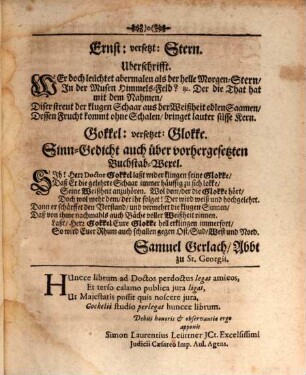 Ernst: versetzt: Stern.
Uberschrifft.
WEr doch leüchtet abermalen als der helle Morgen-Stern/
In der Musen Himmels-Feld? ꝛc. Der die That hat
mit dem Nahmen/
Diser streut der klugen Schaar aus der Weißheit edlen Saamen/
Dessen Frucht kommt ohne Schalen/ bringet lauter süsse Kern.
Gokkel: versetzet: Glokke.
Sinn-Gedicht auch über vorhergesetzten
Buchstab-Wexel.
SIh! Herr Gokkel seine Glokke lasst wider klingen seine Glokke/
Daß Er die gelehrte Schaar immer häuffig zu sich lokke/
Seine Weißheit anzuhören. Wol dem/ der die Glokke hört/
Doch wol mehr dem/ der ihr folget! Der wird weiß und hochgelehrt.
Dann er schärffet den Verstand/ und vermehrt die klugen Sinnen/
Daß von ihme nachmahls auch Bäche voller Weißheit rinnen.
Lasst/ Herr Gokkel Eure Glokke hell erklingen immerfort/
So wird Euer Rhum auch schallen gegen Ost/ Sud/ West und Nord.
Samuel Gerlach/ Abbt
zu St. Georgii.
HUncce librum ad Doctos perdoctus legas amicos,
Et terso calamo publica jura ligas,
Ut Majestatis possit quis noscere jura,
Gockelii studio perlegat huncce librum.
Debiti honoris & observantiæ ergo
apponit
Simon Laurentius Leüttner JCt. Excelsissimi
Judicii Cæsareo Imp. Aul. Agens.